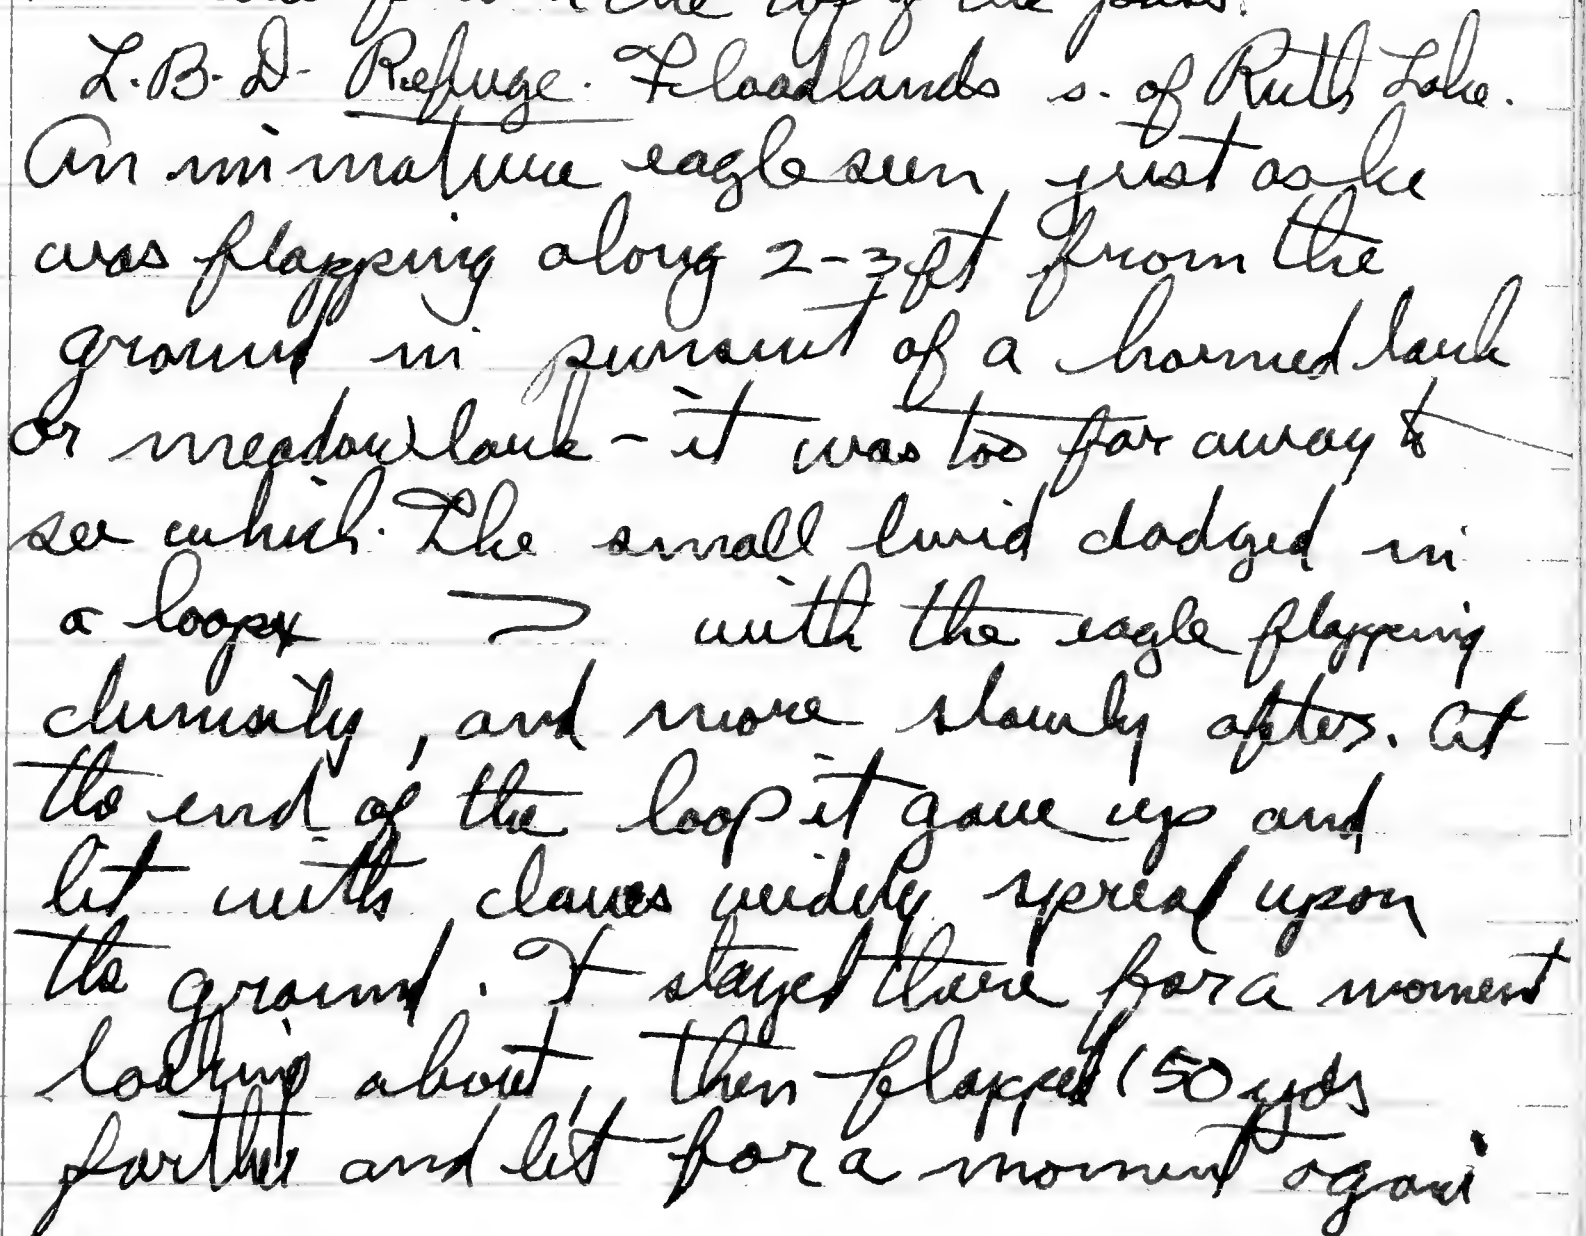 the top of the pass.
L.B.D. Refuge. Floodlands s. of Ruth Lake.
An immature eagle seen, just as he
was flapping along 2-3 ft from the
ground in pursuit of a horned lark
or meadowlark - it was too far away to
see which. The small bird dodged in
a loop with the eagle flapping
clumsily, and more slowly after. At
the end of the loop it gave up and
lit with claws widely spread upon
the ground. It stayed there for a moment
looking about, then flapped 150 yds
farther and lit for a moment again